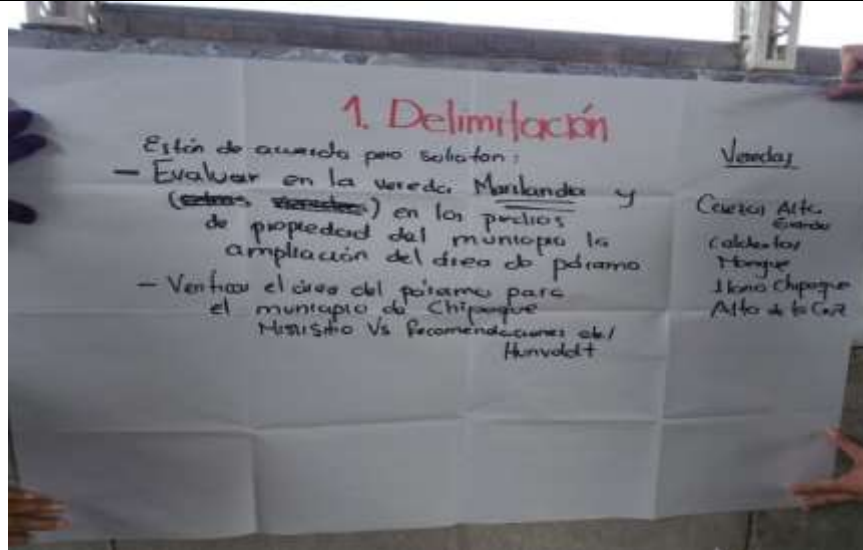 1. Delimitación
Están de acuerdo pero solicitan:
- Evaluar en la vereda Marilandia y
(otras veredas) en los predios
de propiedad del municipio la
ampliación del área de páramo
- Verificar el área del páramo para
el municipio de Chipaque
Minisitio Vs Recomendaciones del
Hunvoldt
Veredas
Cerezos
Caldentas
Mongue
Llano Chipaque
Alto de la Cruz